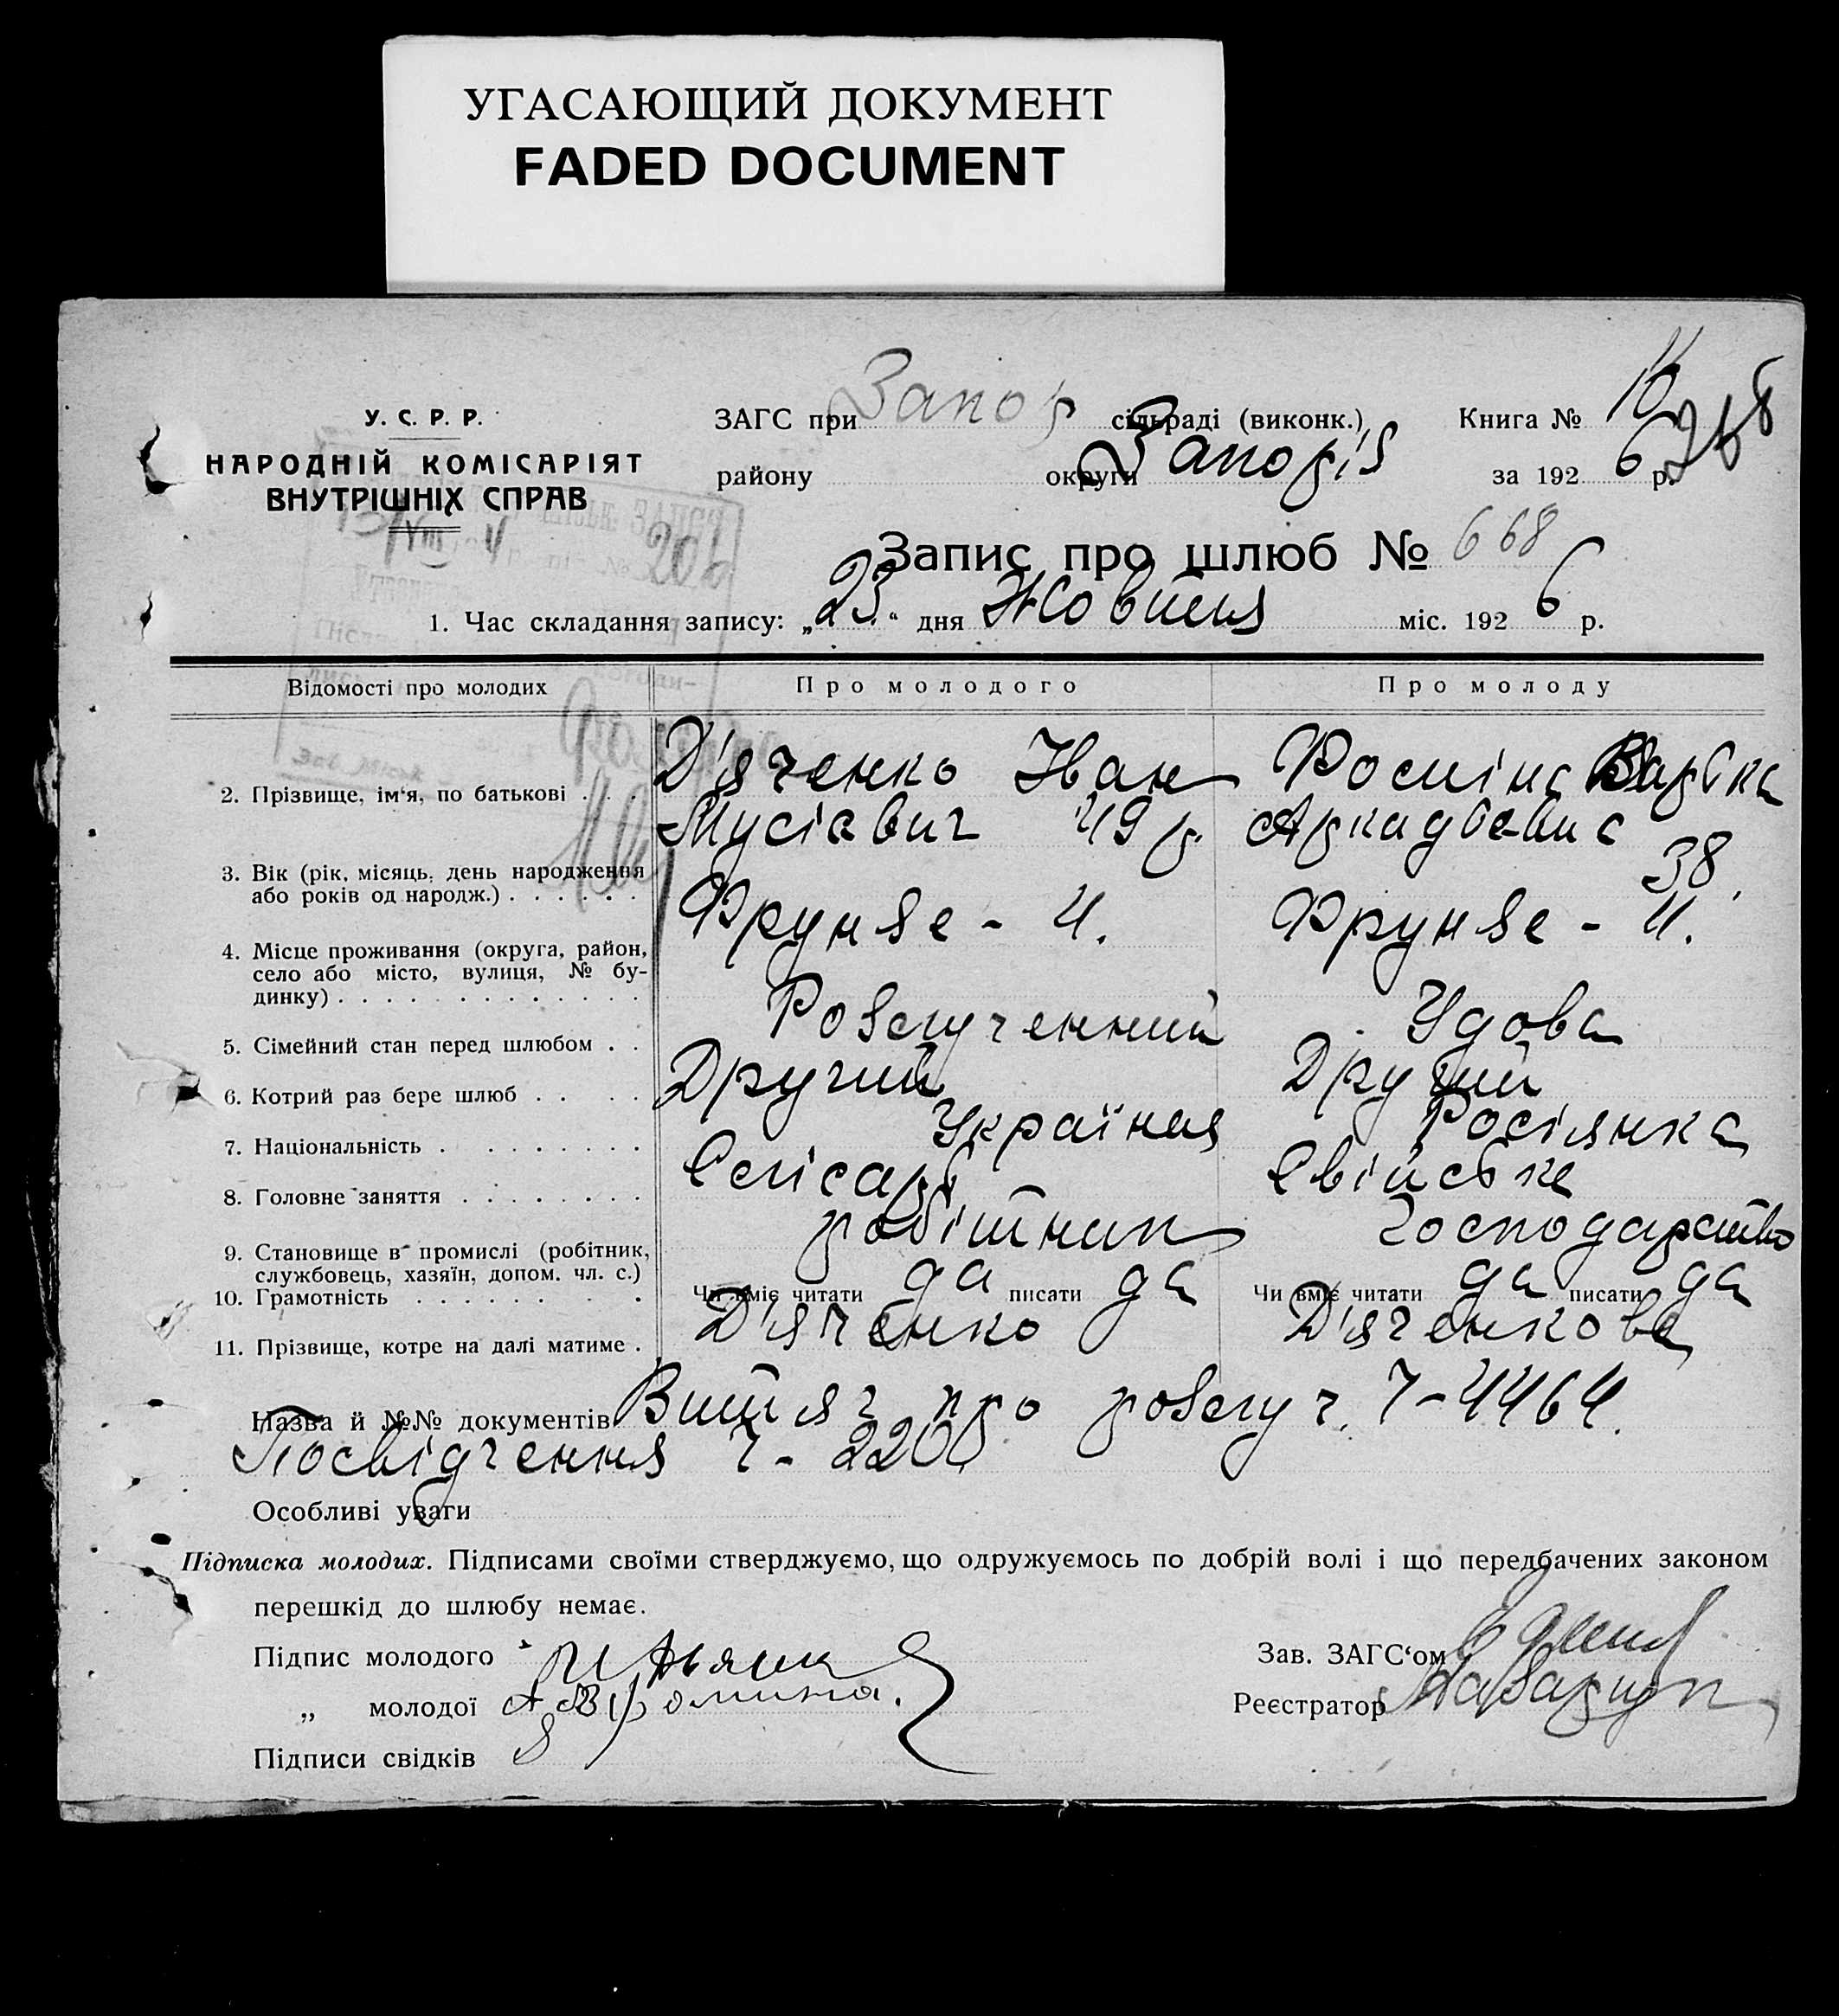 УГАСАЮЩИЙ ДОКУМЕНТ
FADED DOCUMENT
У. С. Р. Р.
НАРОДНІЙ КОМІСАРІЯТ
ВНУТРІШНІХ СПРАВ
ЗАГС при Запор сільраді (виконк.) Книга №
району округи Запоріз за 192 6 р.
Запис про шлюб № 668
1. Час складання запису: „23“ дня Жовтня міс. 192 6 р.
Відомості про молодих Про молодого Про молоду
2. Прізвище, ім'я, по батькові . . . Д'яченко Іван
Мусієвич 49 р.
3. Вік (рік, місяць, день народження
або років од народж.) . . . . . . 38
4. Місце проживання (округа, район,
село або місто, вулиця, № бу-
динку) . . . . . . . . . . . . . Фрунзе - 4. Фрунзе - 4.
5. Сімейний стан перед шлюбом . . Розлученний Удова
6. Котрий раз бере шлюб . . . . Другий Другий
7. Національність . . . . . . . . . Українец Росіянка
8. Головне заняття . . . . . . . . Слісарь Свійське
робітник господарство
9. Становище в промислі (робітник,
службовець, хазяїн, допом. чл. с.)
10. Грамотність . . . . . . . . Чи вміє читати да писати да Чи вміє читати да писати да
11. Прізвище, котре на далі матиме . Д'яченко Д'яченкова
Назва й №№ документів Витяг про розлуч. Ч-4464.
Посвідчення Ч-
Особливі уваги
Підписка молодих. Підписами своїми стверджуємо, що одружуємось по добрій волі і що передбачених законом
перешкід до шлюбу немає.
Підпис молодого Зав. ЗАГС‘ом
„ молодої Реєстратор
Підписи свідків